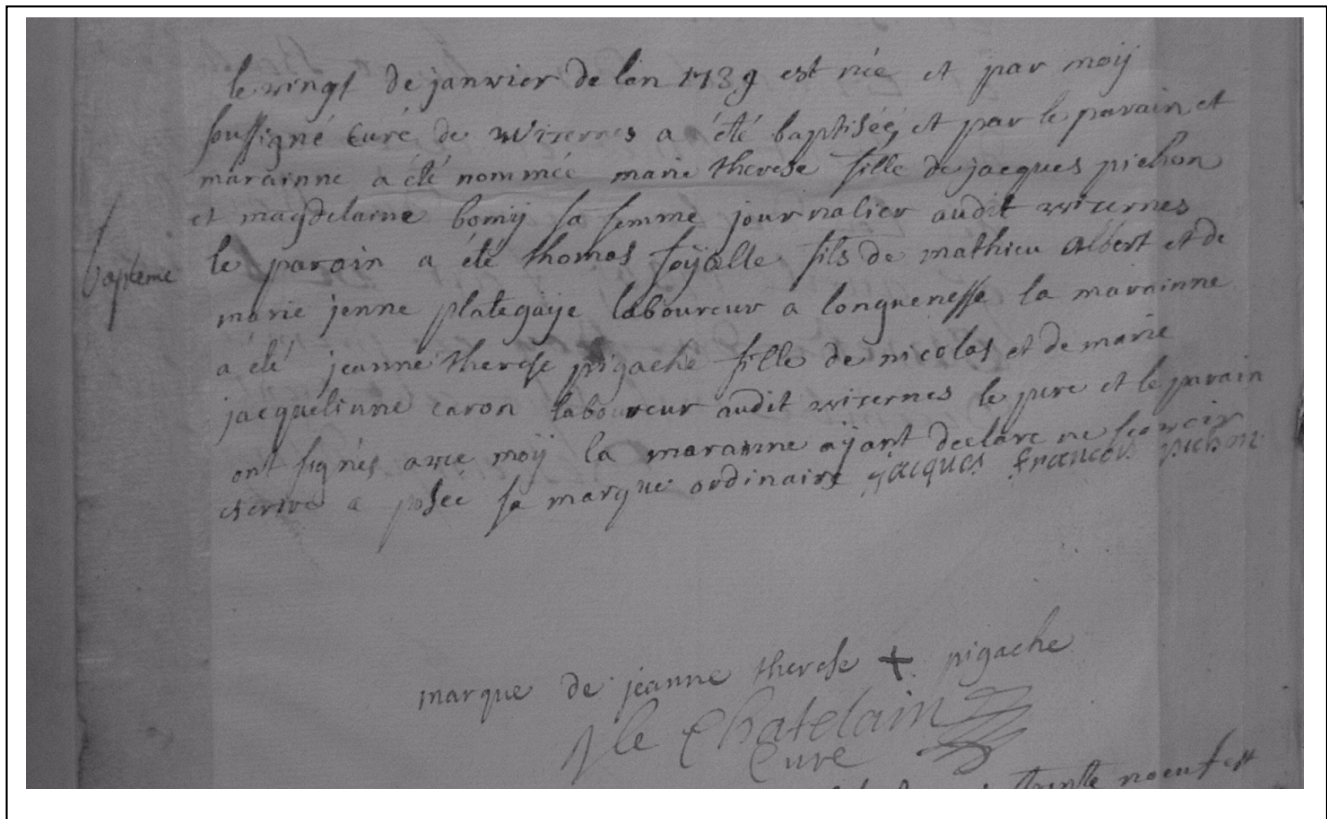 le vingt de janvier de lan 1739 est née et par moij
soussigné Curé de wisernes a été baptiséé et par le parain et
marainne a été nommée marie therese fille de jacques pichon
et magdelaine bomij sa femme journalier audit wisernes
bapteme
le parain a été thomas foÿelle fils de mathieu Albert et de
marie jenne plategaije laboureur a longuenesse la marainne
a été jeanne therese pigache fille de nicolas et de marie
jacquelinne caron laboureur audit wisernes le pere et le parain
ont signés avec moij la marainne aÿant declaré ne scavoir
escrire a posée sa marque ordinaire jacques francois pichon
marque de jeanne therese + pigache
le Chatelain
Curé
trente noeuf est